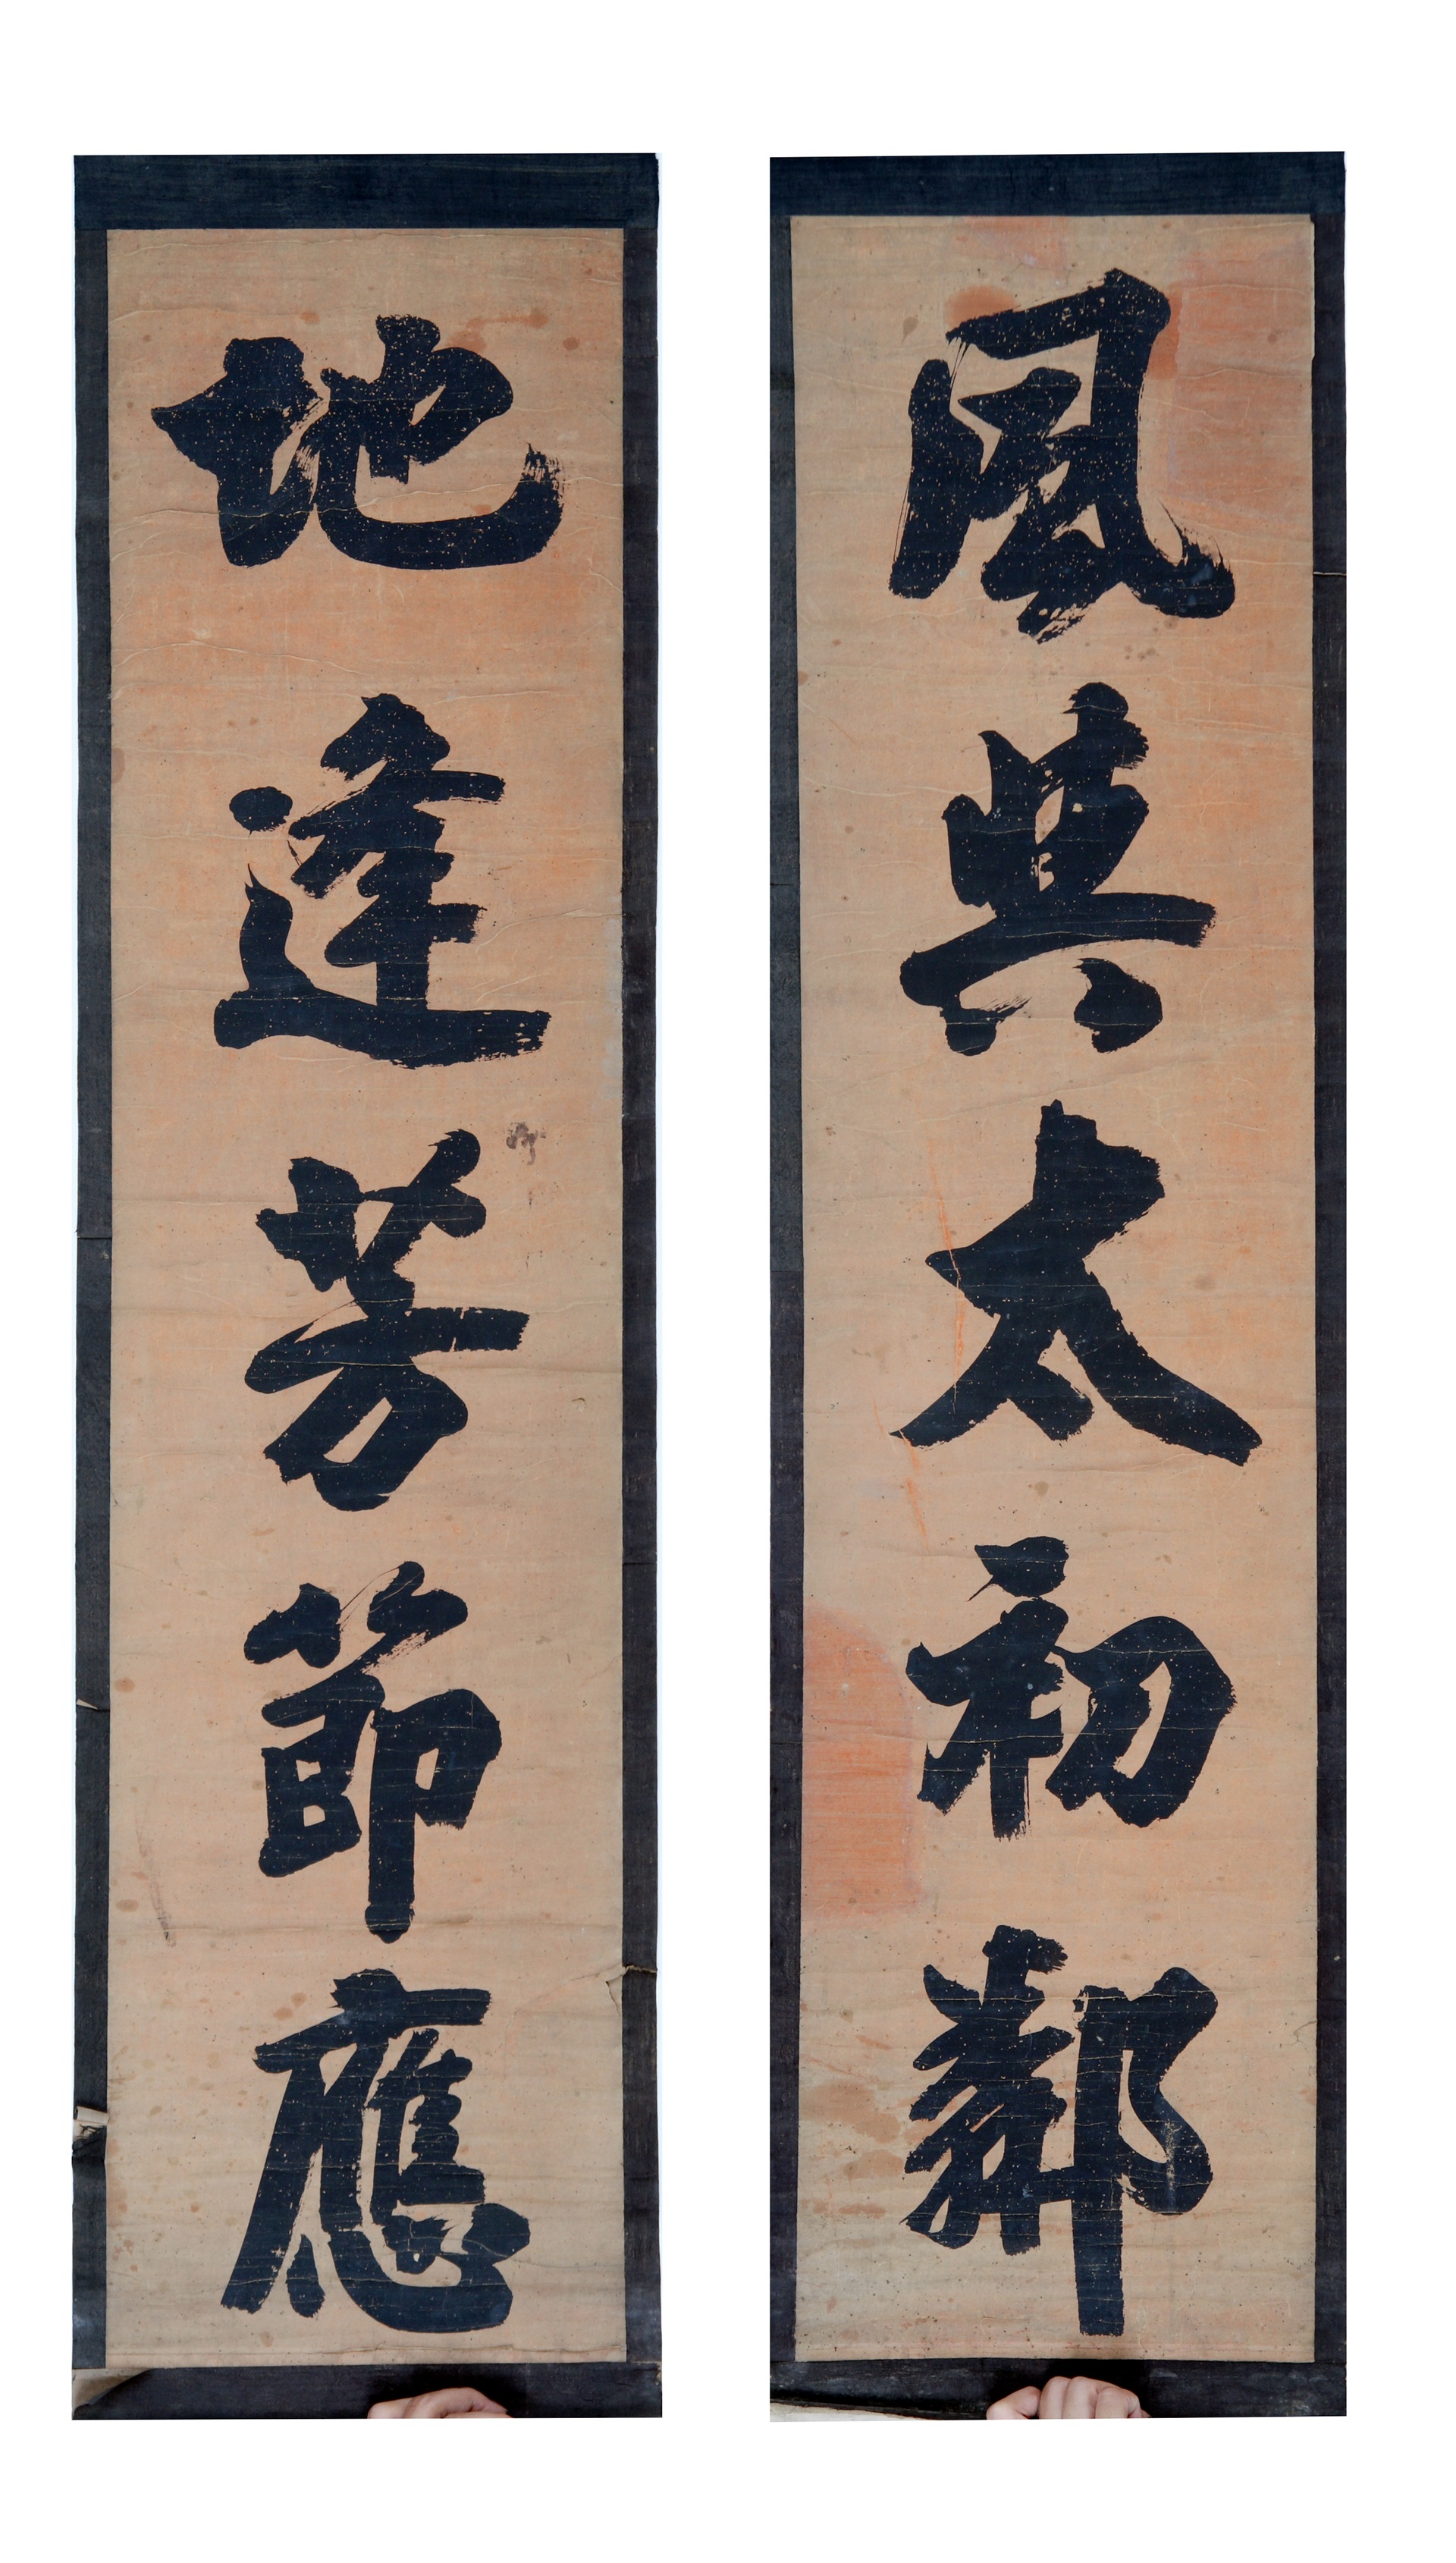 風與太初鄰
地逢芳節應